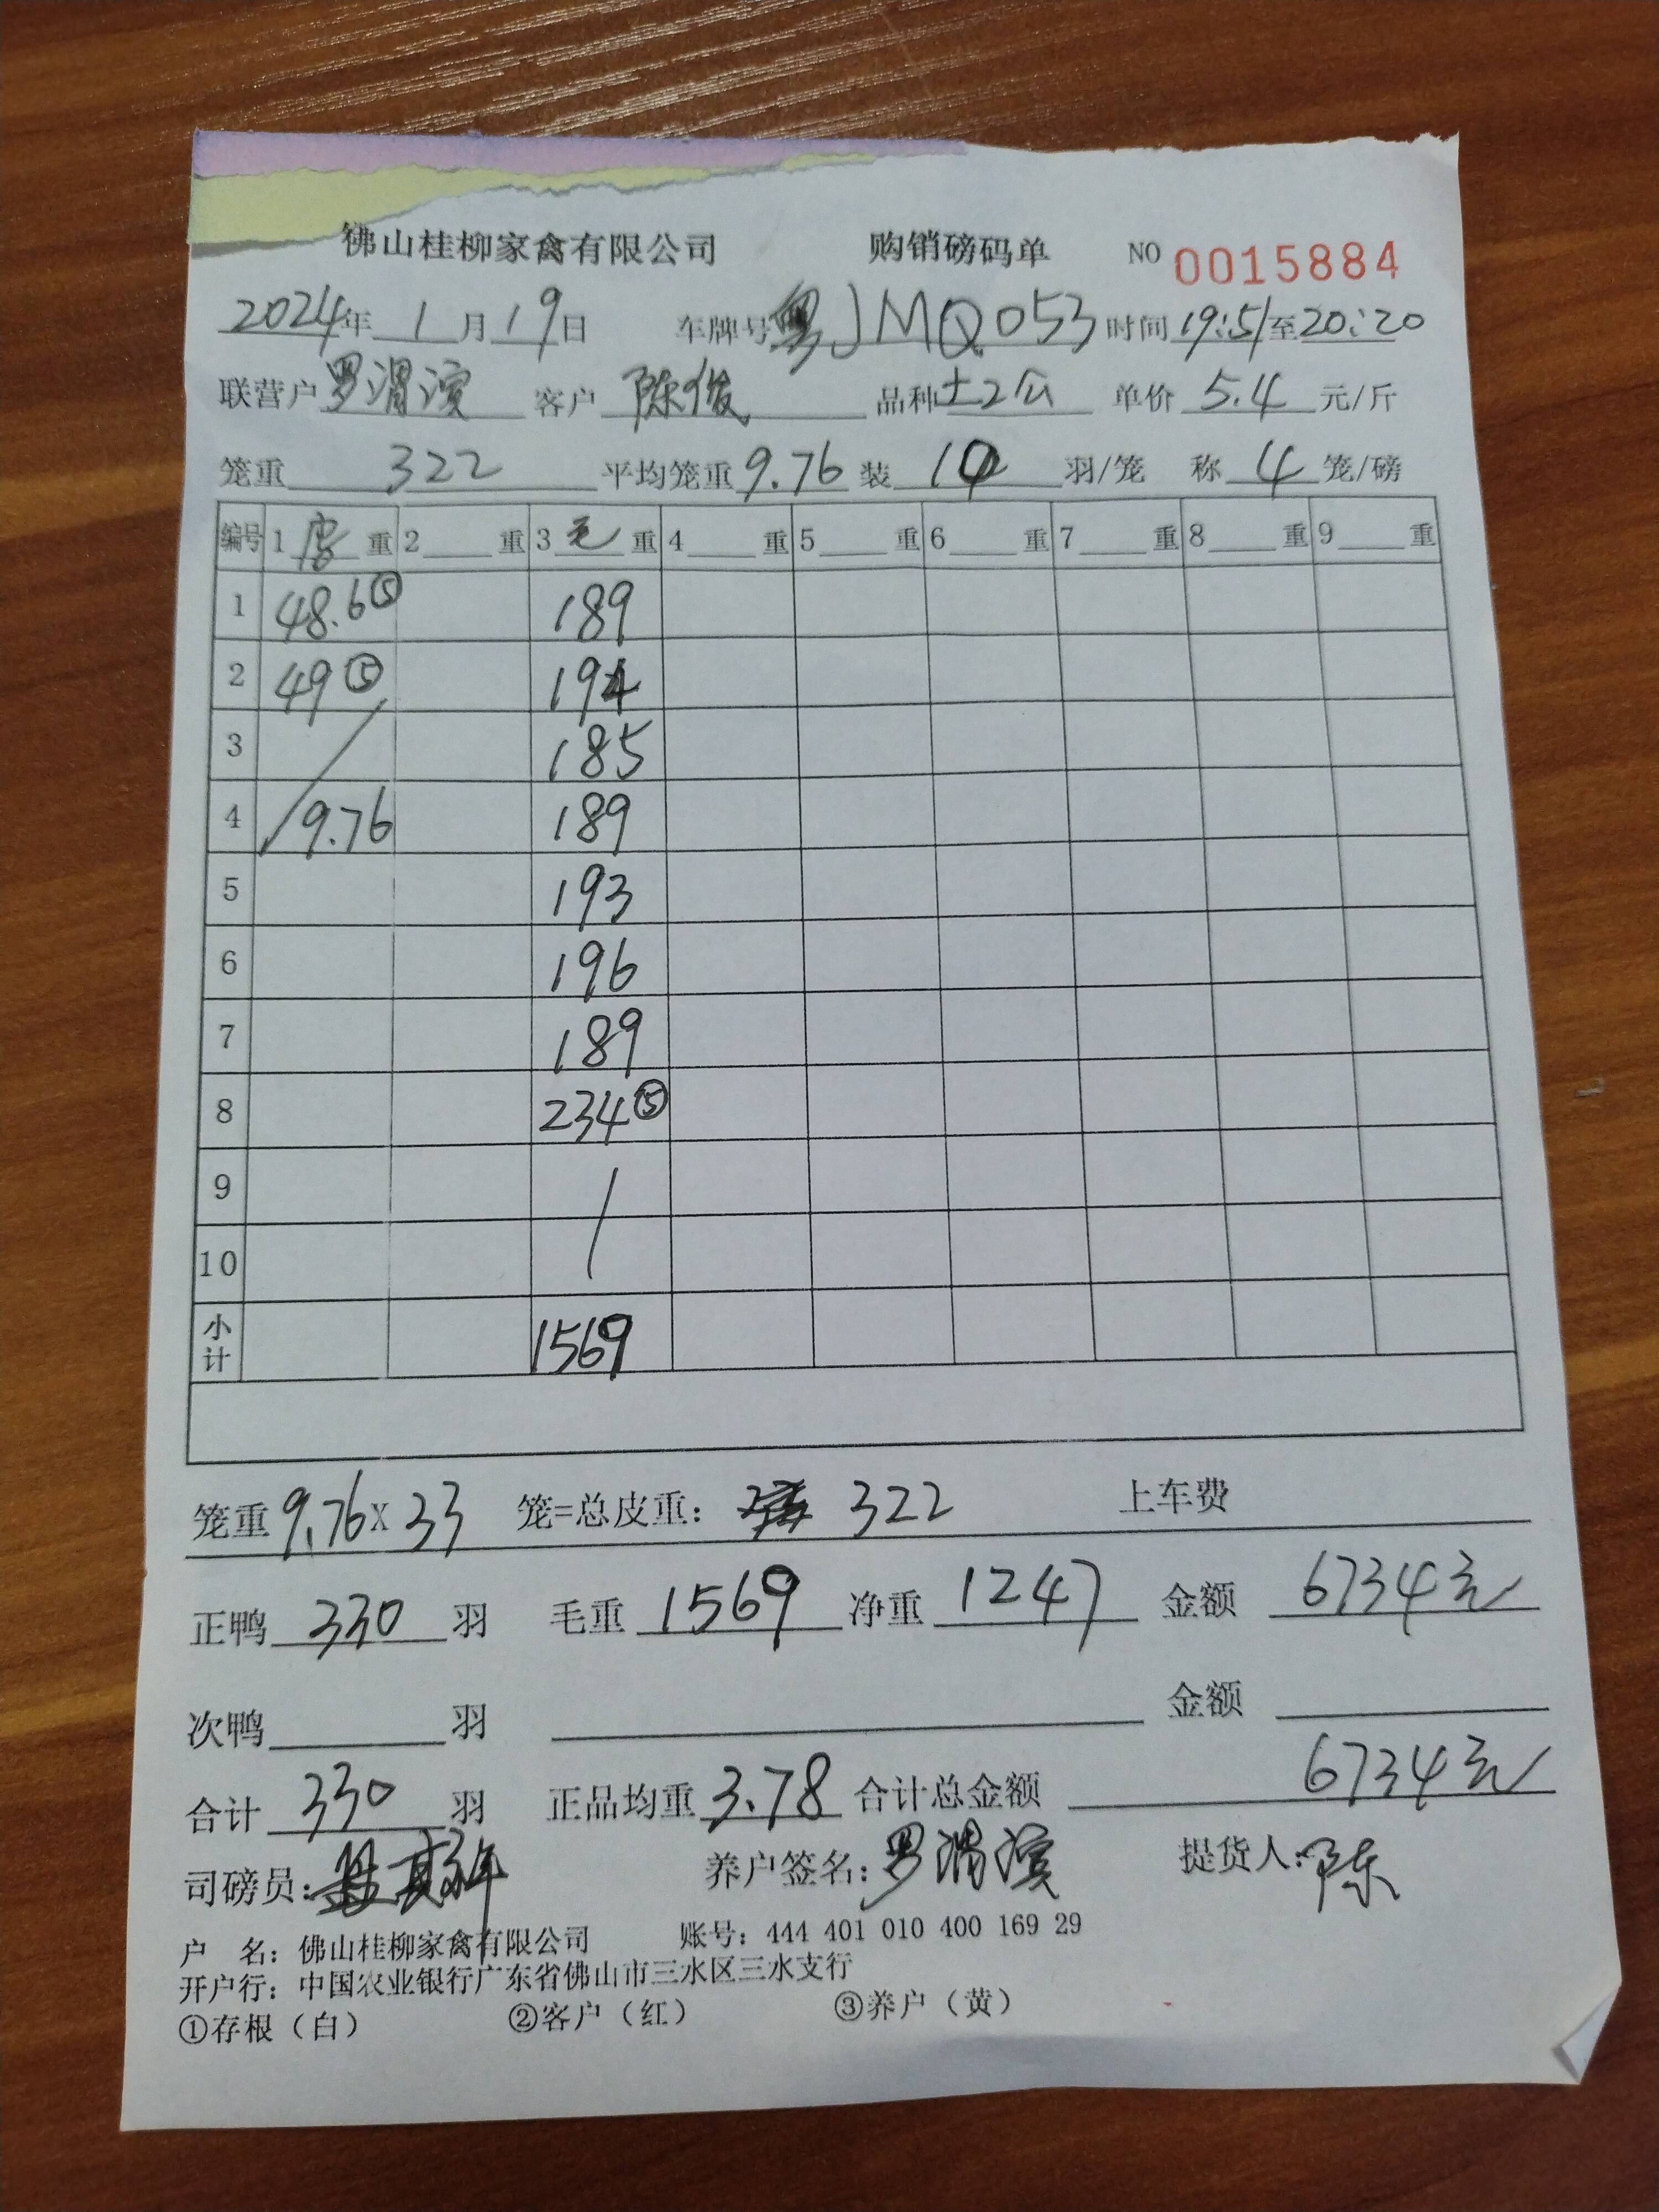 佛山桂柳家禽有限公司 购销磅码单 NO 0015884
2024年 1月19日 车牌号粤JMQ053 时间19:51至20:20
联营户罗渭滨 客户 陈俊 品种土2公 单价 5.4 元/斤
笼重 322 平均笼重9.76 装 10 羽/笼 称 4 笼/磅
编号 1 重 2 重 3 毛 重 4 重 5 重 6 重 7 重 8 重 9 重
1 48.6⑤ 189
2 49⑤ 194
3 185
4 9.76 189
5 193
6 196
7 189
8 234⑤
9
10
小计 1569
笼重9.76X33 笼=总皮重: 322 上车费
正鸭 330 羽 毛重 1569 净重 1247 金额 6734元
次鸭 羽 金额
合计 330 羽 正品均重 3.78 合计总金额 6734元
司磅员: 养户签名:罗渭滨 提货人:陈
户 名: 佛山桂柳家禽有限公司 账号: 444 401 010 400 169 29
开户行: 中国农业银行广东省佛山市三水区三水支行
①存根（白） ②客户（红） ③养户（黄）